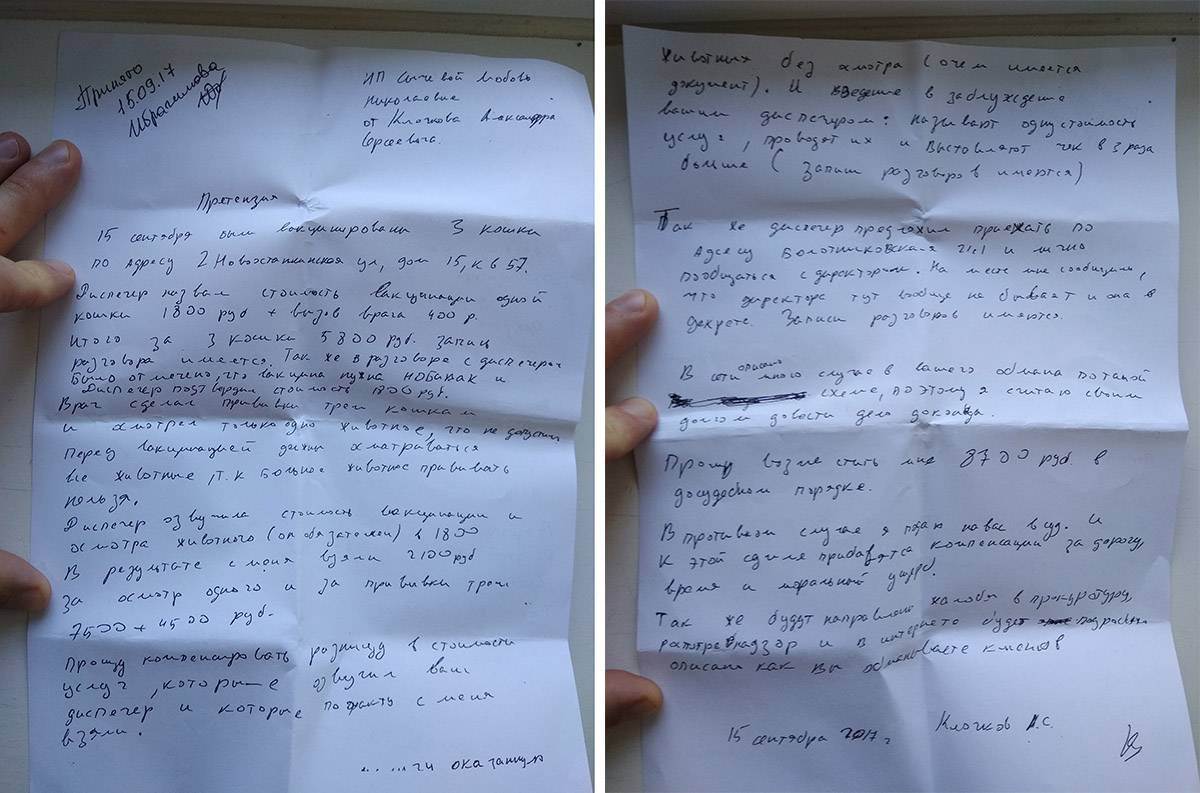 Принято
15.09.17
Ибрагимова
ИП Сычевой Любовь
Николаевне
от Клочкова Александра
Сергеевича.
Претензия
15 сентября были вакцинированы 3 кошки
по адресу 2 Новоостанкинская ул, дом 15, кв 57.
Диспечер назвал стоимость вакцинации одной
кошки 1800 руб + вызов врача 400 р.
Итого за 3 кошки 5800 руб. запись
разговора имеется. Так же в разговоре с диспечером
было отмечено, что вакцина нужна НОБИВАК и
Диспечер подтвердил стоимость 1800 руб.
Врач сделал прививки трем кошкам
и осмотрел только одно животное, что не допустим
Перед вакцинацией должны осматриваться
все животные, т.к больное животное прививать
нельзя.
Диспечер озвучила стоимость вакцинации и
осмотра животного (он обязателен) в 1800
В результате с меня взяли 2100 руб
За осмотр одного и за прививки троим
7500 + 4500 руб.
Прошу компенсировать разницу в стоимости
услуг, которые озвучил ваш
диспечер и которые по факту с меня
взяли.
оказании
животных без осмотра (о чем имеется
документ). И введение в заблуждение
вашим диспечером: называют одну стоимость
услуг, проводят их и выставляют чек в 3 раза
больше (записи разговоров имеются)
Так же диспечер предложил приехать по
адресу Болотниковская 21с1 и лично
пообщаться с директором. На месте мне сообщили,
что директора тут вообще не бывает и она в
декрете. Записи разговоров имеются.
В сети описано много случаев вашего обмана по такой
схеме, поэтому я считаю своим
долгом довести дело до конца.
Прошу возместить мне 8700 руб. в
досудебном порядке.
В противном случае я подаю на вас в суд. И
к этой сумме прибавятся компенсации за дорогу,
время и моральный ущерб.
Так же будут направлены жалобы в прокуратуру,
роспотребнадзор и в интернете будет подробно
описано как вы обманываете клиентов
15 сентября 2017 г
Клочков А.С.